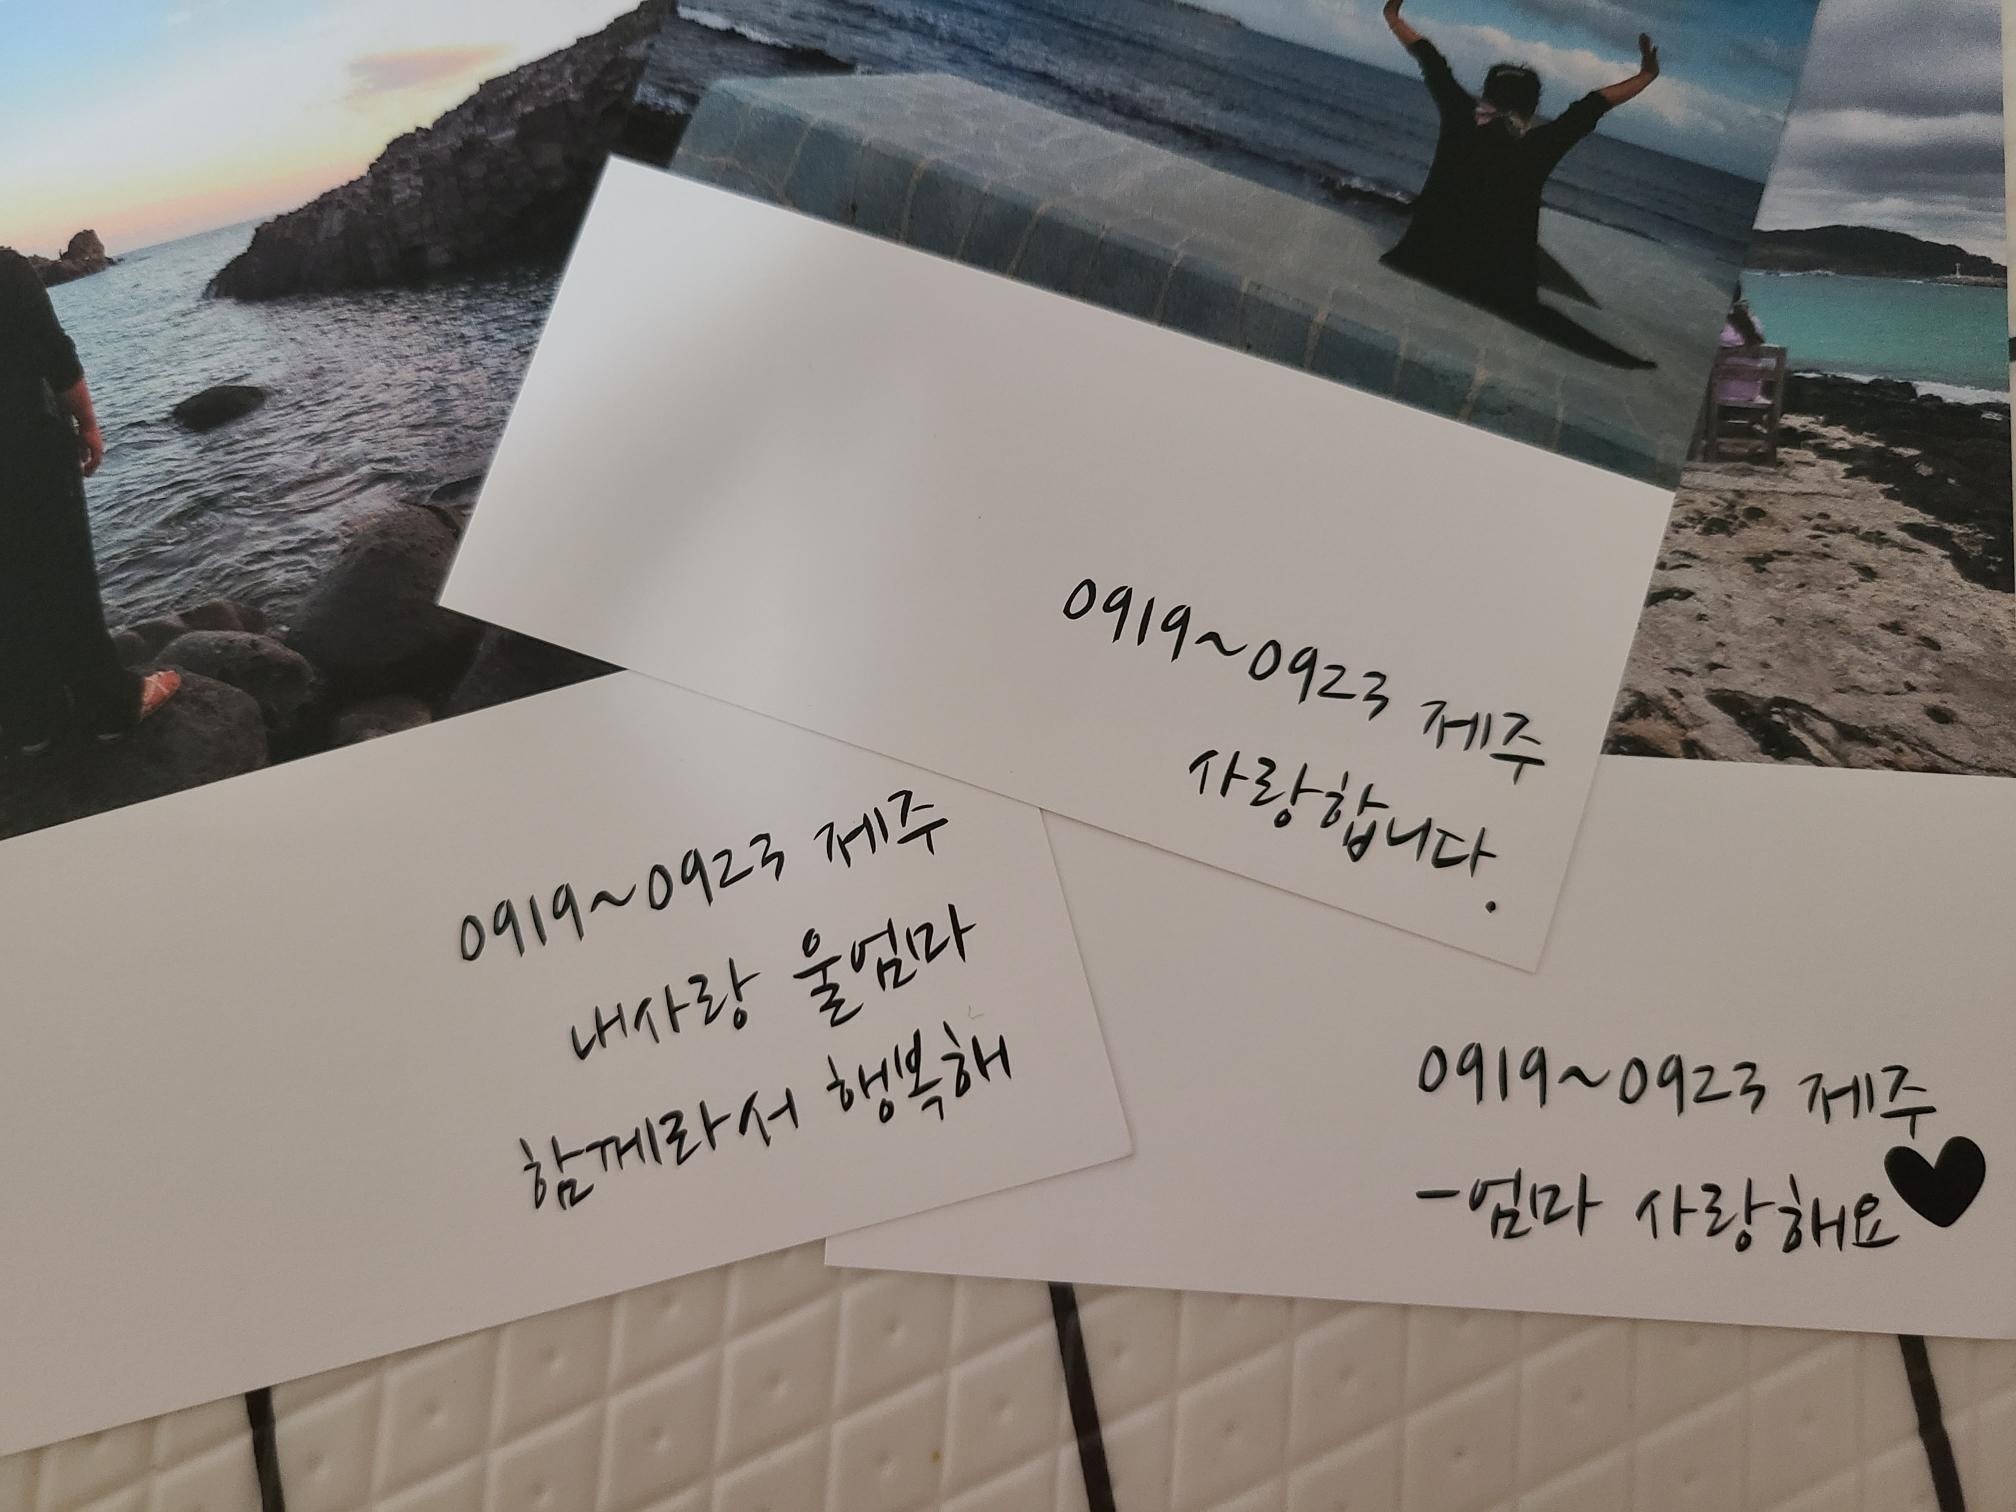 0919~0923 제주
사랑합니다.
0919~0923 제주
내사랑 울엄마
함께라서 행복해
0919~0923 제주
-엄마 사랑해요♥